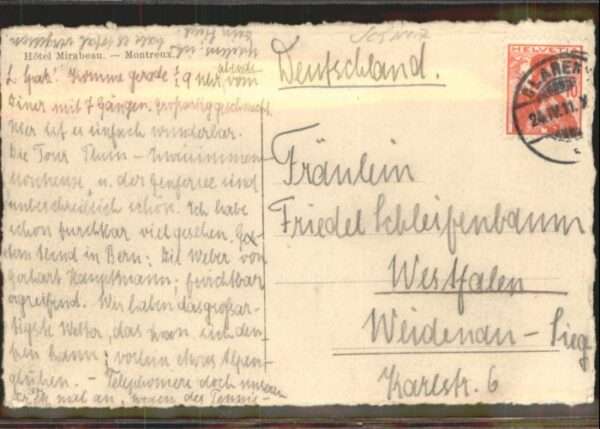 Hôtel Mirabeau. — Montreux.
L. Grete! Komme gerade ½ 9 Uhr, abends vom
Diner mit 7 Gängen. Grossartig geschmeckt.
Hier ist es einfach wunderbar.
Die Tour Thun – Zweisimmen
Montreux u. der Genfersee sind
unbeschreiblich schön. Ich habe
schon furchtbar viel gesehen. Ges-
tern Abend in Bern: Die Weber von
Gerhart Hauptmann; furchtbar
ergreifend. Wir haben das grossar-
tigste Wetter, das man sich den-
ken kann; vorhin etwas Alpen-
glühen. – Telephoniere doch
mal an, wegen des Tennis-
Schweiz
Deutschland.
HELVETIA
10
GLARUS
24.IV.11.X
Fräulein
Friedel Schleifenbaum
Westfalen
Weidenau – Sieg
Karlstr. 6